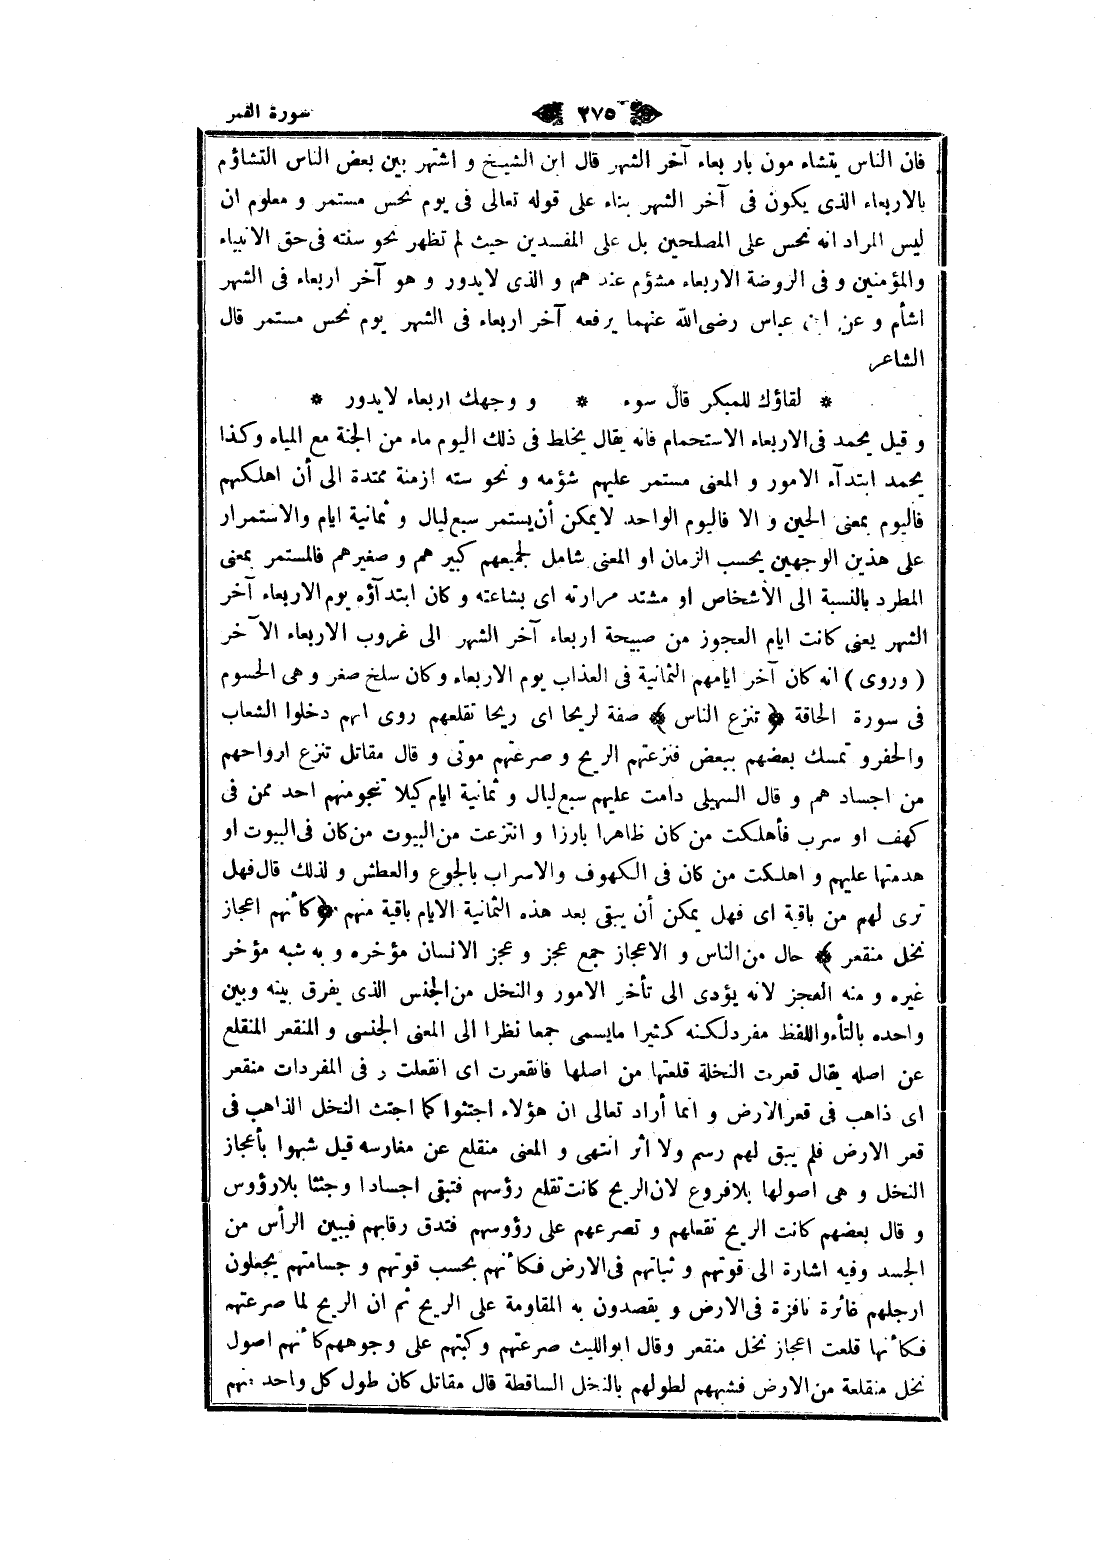 سورة القمر
٢٧٥
فان الناس يتشاء مون بار بعاء آخر الشهر قال ابن الشيخ و اشتهر بين بعض الناس التشاؤم
بالاربعاء الذى يكون فى آخر الشهر بناء على قوله تعالى فى يوم نحس مستمر و معلوم ان
ليس المراد انه نحس على المصلحين بل على المفسدين حيث لم تظهر نحو سته فى حق الانبياء
والمؤمنين و فى الروضة الاربعاء مشؤم عند هم و الذى لايدور و هو آخر اربعاء فى الشهر
اشأم و عن ابن عباس رضى الله عنهما يرفعه آخر اربعاء فى الشهر يوم نحس مستمر قال
الشاعر
* لقاؤك للمبكر قال سوء * و وجهك اربعاء لايدور *
و قيل يحمد فى الاربعاء الاستحمام فانه يقال يخلط فى ذلك اليوم ماء من الجنة مع المياه وكذا
يحمد ابتدآء الامور و المعنى مستمر عليهم شؤمه و نحو سته ازمنة ممتدة الى أن اهلكهم
فاليوم بمعنى الحين و الا فاليوم الواحد لايمكن أن يستمر سبع ليال و ثمانية ايام والاستمرار
على هذين الوجهين بحسب الزمان او المعنى شامل لجميعهم كبير هم و صغيرهم فالمستمر بمعنى
المطرد بالنسبة الى الأشخاص او مشتد مرارته اى بشاعته و كان ابتدآؤه يوم الاربعاء آخر
الشهر يعنى كانت ايام العجوز من صبيحة اربعاء آخر الشهر الى غروب الاربعاء الآخر
( وروى ) انه كان آخر ايامهم الثمانية فى العذاب يوم الاربعاء وكان سلخ صفر و هى الحسوم
فى سورة الحاقة ﴿ تنزع الناس ﴾ صفة لريحا اى ريحا تقلعهم روى انهم دخلوا الشعاب
والحفر و تمسك بعضهم ببعض فنزعتهم الريح و صرعتهم موتى و قال مقاتل تنزع ارواحهم
من اجساد هم و قال السهيلى دامت عليهم سبع ليال و ثمانية ايام كيلا تنجو منهم احد ممن فى
كهف او سرب فأهلكت من كان ظاهرا بارزا و انتزعت من البيوت من كان فى البيوت او
هدمتها عليهم و اهلكت من كان فى الكهوف والاسراب بالجوع والعطش و لذلك قال فهل
ترى لهم من باقية اى فهل يمكن أن يبقى بعد هذه الثمانية الايام باقية منهم ﴿ كأنهم اعجاز
نخل منقعر ﴾ حال من الناس و الاعجاز جمع عجز و عجز الانسان مؤخره و به شبه مؤخر
غيره و منه العجز لانه يؤدى الى تأخر الامور والنخل من الجنس الذى يفرق بينه وبين
واحده بالتاء واللفظ مفرد لكنه كثيرا مايسمى جمعا نظرا الى المعنى الجنسى و المنقعر المنقلع
عن اصله يقال قعرت النخلة قلعتها من اصلها فانقعرت اى انقعلت ر فى المفردات منقعر
اى ذاهب فى قعر الارض و انما أراد تعالى ان هؤلاء اجتثوا كما اجتث النخل الذاهب فى
قعر الارض فلم يبق لهم رسم ولا اثر انتهى و المعنى منقلع عن مغارسه قيل شبهوا بأعجاز
النخل و هى اصولها بلافروع لان الريح كانت تقلع رؤسهم فتبقى اجسادا وجثثا بلارؤوس
و قال بعضهم كانت الريح تقعلهم و تصرعهم على رؤوسهم فتدق رقابهم فيبين الرأس من
الجسد وفيه اشارة الى قوتهم و ثباتهم فى الارض فكأنهم بحسب قوتهم و جسامتهم يجعلون
ارجلهم غائرة نافزة فى الارض و يقصدون به المقاومة على الريح ثم ان الريح لما صرعتهم
فكأنها قلعت اعجاز نخل منقعر وقال ابوالليث صرعتهم وكبتهم على وجوههم كأنهم اصول
نخل منقلعة من الارض فشبههم لطولهم بالنخل الساقطة قال مقاتل كان طول كل واحد منهم